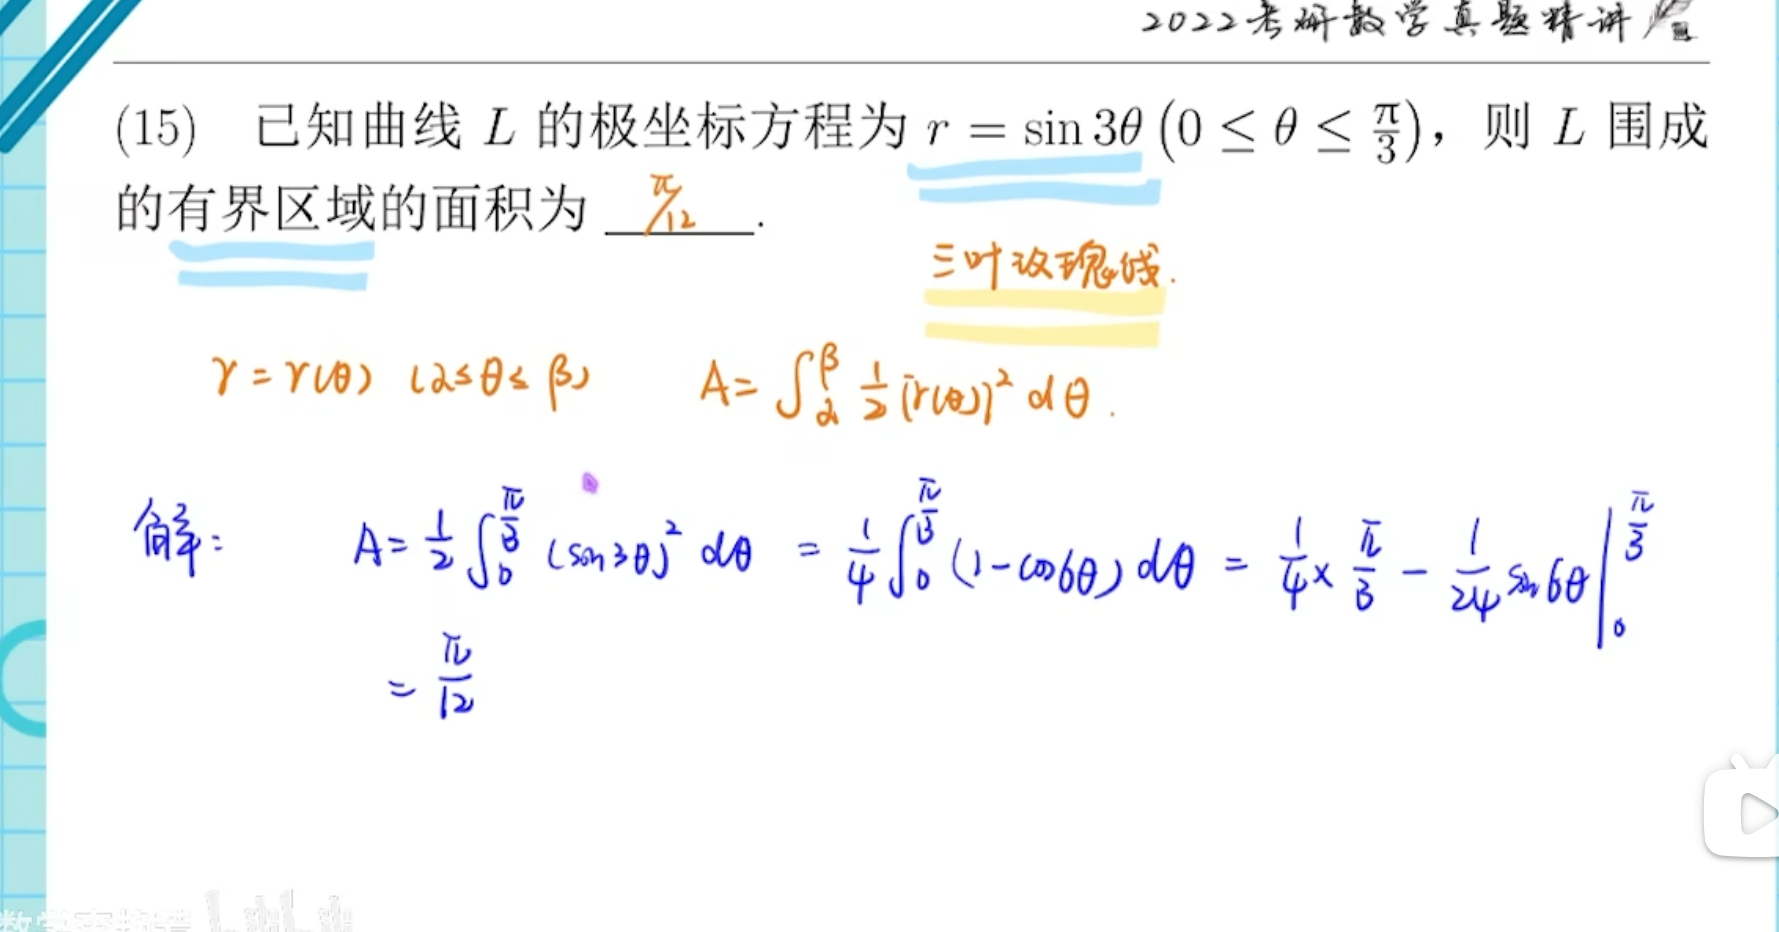 2022考研数学真题精讲
(15) 已知曲线 L 的极坐标方程为 r = sin 3θ (0 ≤ θ ≤ π/3)，则 L 围成
的有界区域的面积为 π/12 .
三叶玫瑰线.
r = r(θ) (α≤θ≤β) A = ∫_α^β 1/2 [r(θ)]² dθ .
解: A = 1/2 ∫_0^{π/3} (sin3θ)² dθ = 1/4 ∫_0^{π/3} (1-cos6θ) dθ = 1/4 × π/3 - 1/24 sin6θ |_0^{π/3}
= π/12